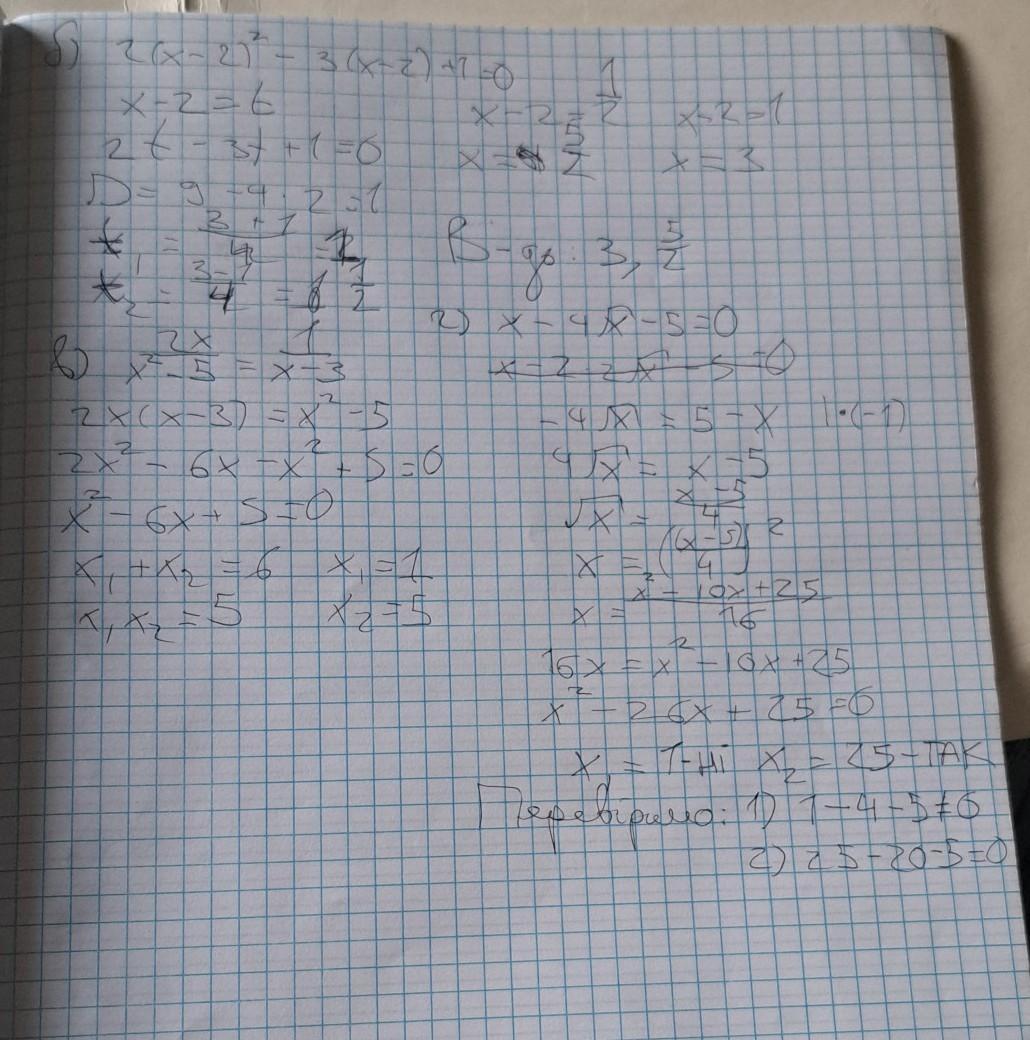 б) 2(x-2)² - 3(x-2)+1=0
x-2=t
2t - 3t + 1 = 0
D = 9 - 4 · 2 = 1
t₁ = (3+1)/4 = 1
t₂ = (3-1)/4 = 1/2
x-2 = 1/2 x-2=1
x = 5/2 x = 3
В-дь: 3, 5/2
в) 2x/(x²-5) = 1/(x-3)
2x(x-3) = x²-5
2x² - 6x - x² + 5 = 0
x² - 6x + 5 = 0
x₁ + x₂ = 6 x₁ = 1
x₁ x₂ = 5 x₂ = 5
г) x - 4√x - 5 = 0
x - 2 · 2√x - 5 = 0
-4√x = 5 - x |·(-1)
4√x = x - 5
√x = (x-5)/4
x = ((x-5)/4)²
x = (x² - 10x + 25)/16
16x = x² - 10x + 25
x² - 26x + 25 = 0
x₁ = 1-ні x₂ = 25-ТАК
Перевіримо: 1) 1-4-5≠0
2) 25-20-5=0